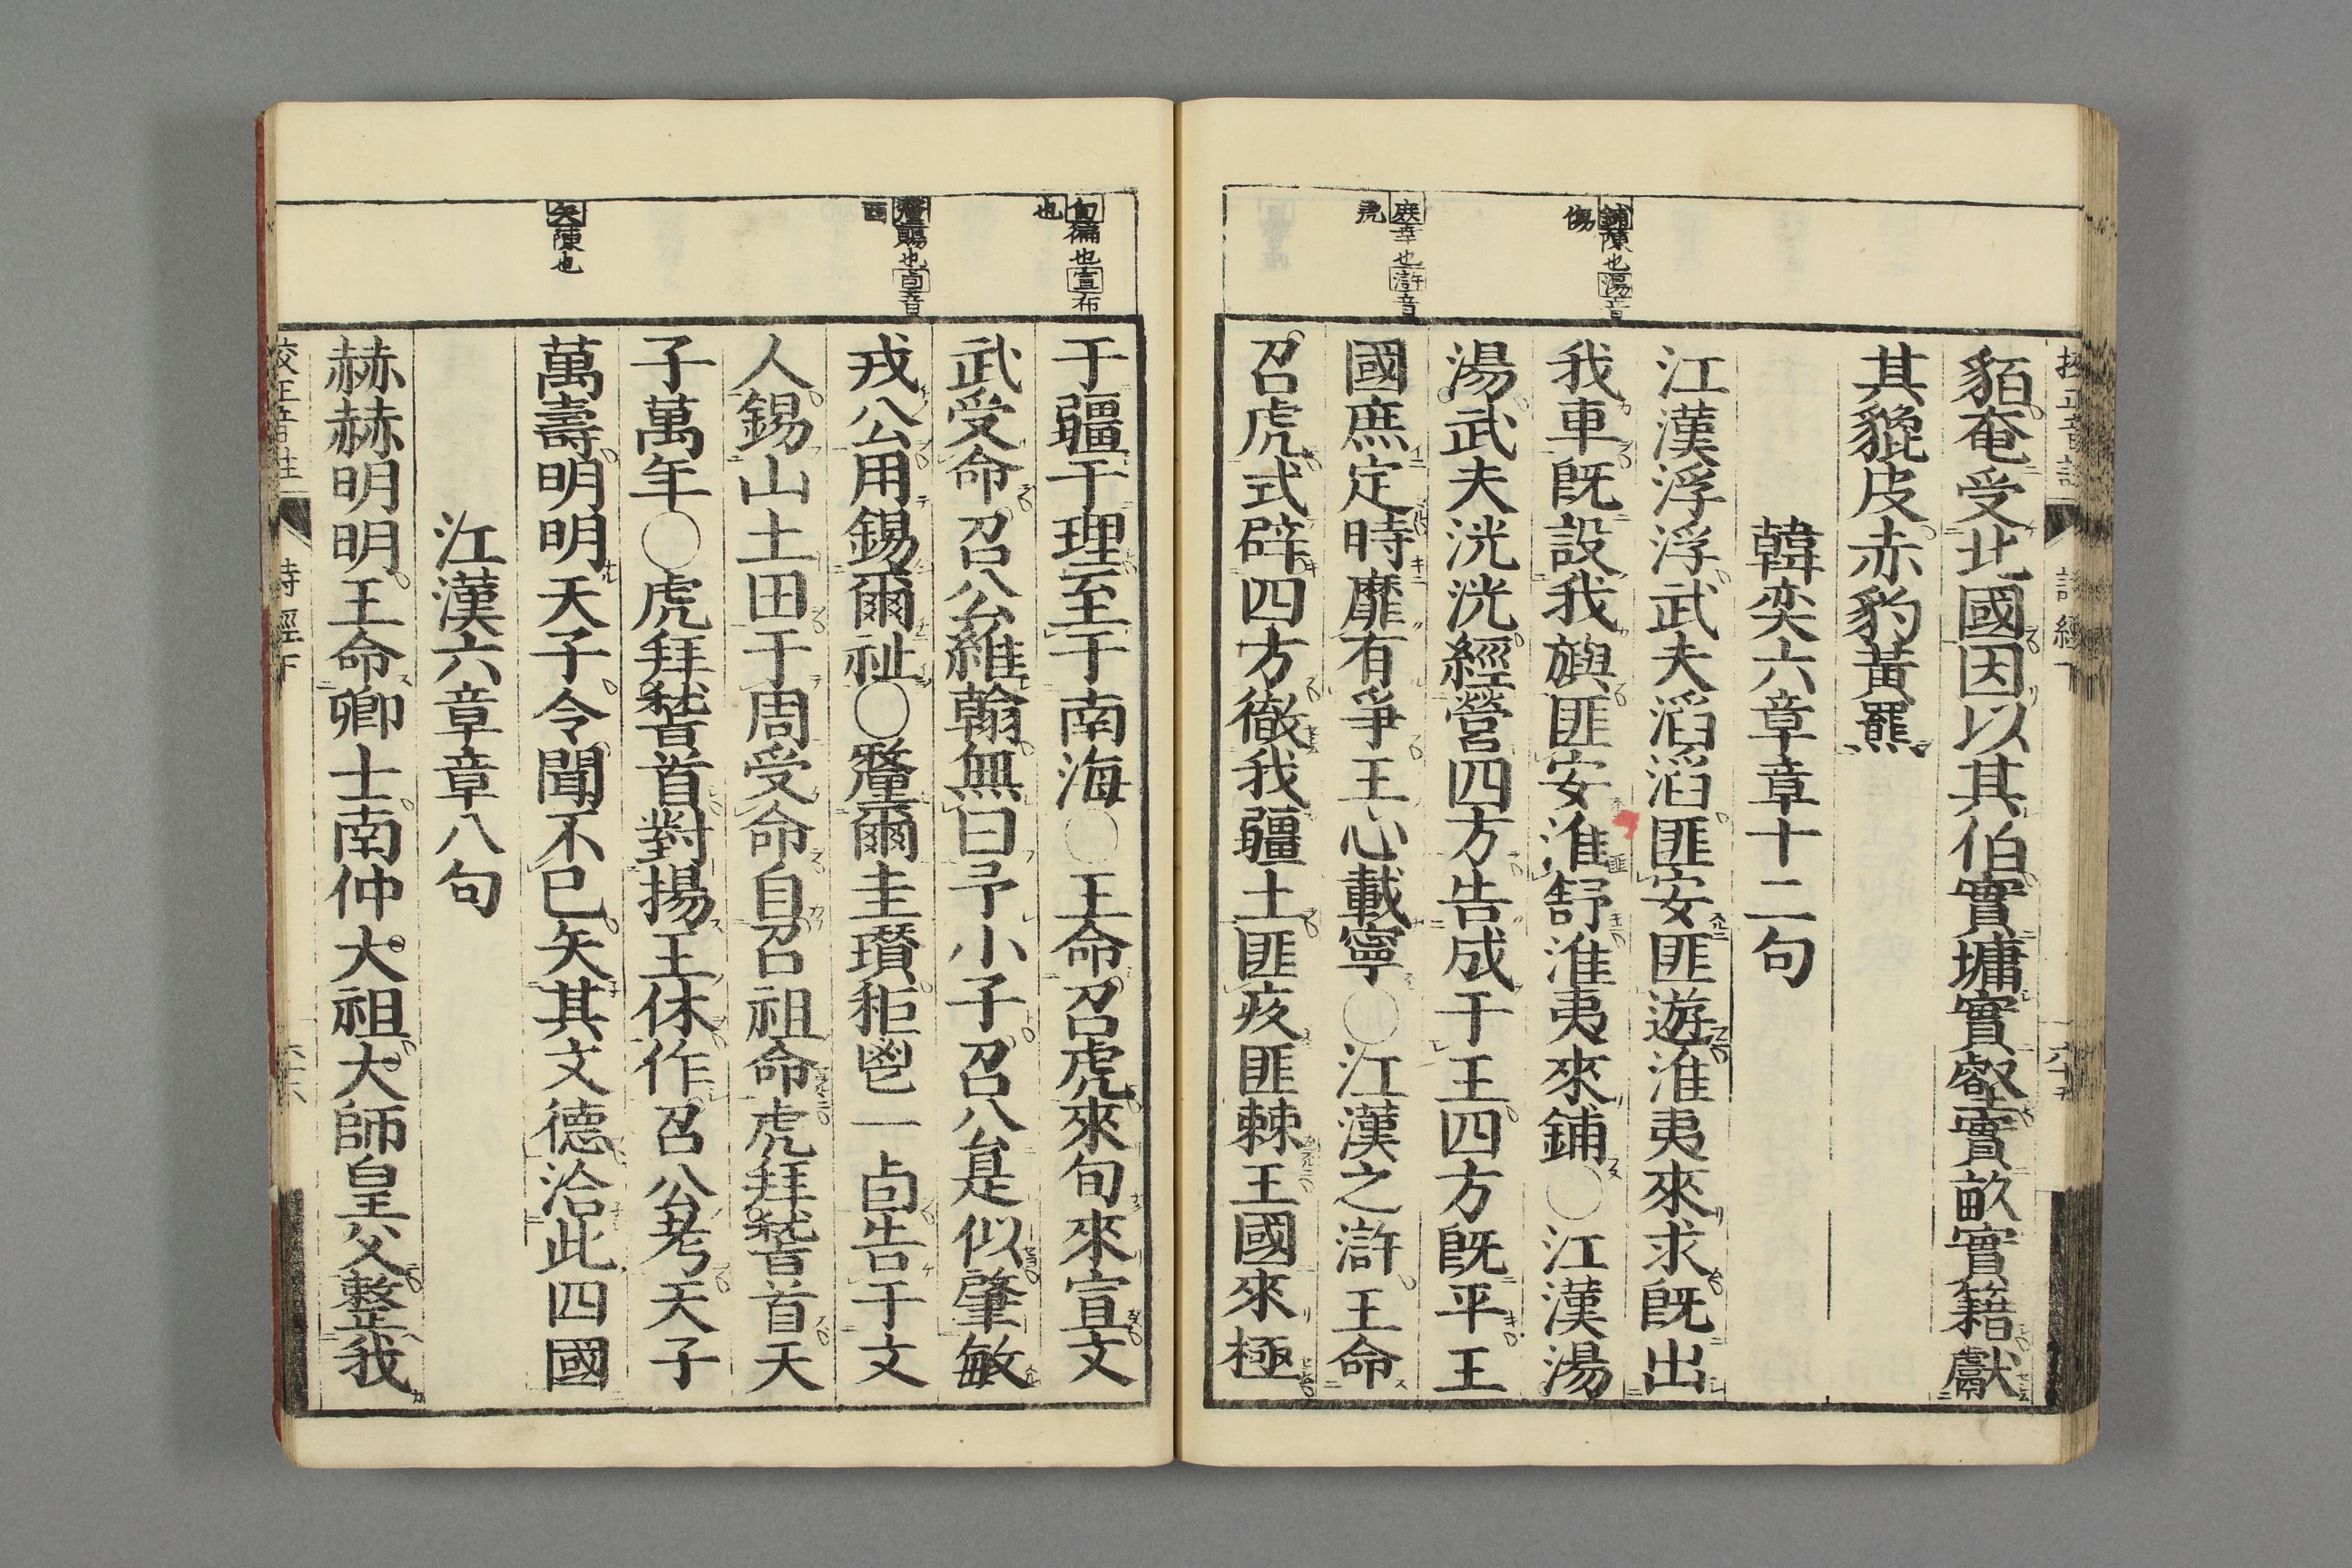 鋪陳也湯音
傷
庶幸也滸音
虎
貊奄受北國因以其伯實墉實壑實畝實籍獻
其貔皮赤豹黃羆
韓奕六章章十二句
江漢浮浮武夫滔滔匪安匪遊淮夷來求既出
我車既設我旟匪安淮舒淮夷來鋪〇江漢湯
匪
湯武夫洸洸經營四方告成于王四方既平王
國庶定時靡有爭王心載寧〇江漢之滸王命
召虎式辟四方徹我疆土匪疚匪棘王國來極
旬徧也宣布
也
釐賜也卣音
酉
矢陳也
于疆于理至于南海〇王命召虎來旬來宣文
武受命召公維翰無曰予小子召公是似肇敏
戎公用錫爾祉〇釐爾圭瓚秬鬯一卣告于文
人錫山土田于周受命自召祖命虎拜稽首天
子萬年〇虎拜稽首對揚王休作召公考天子
萬壽明明天子令聞不已矢其文德洽此四國
江漢六章章八句
赫赫明明王命卿士南仲大祖大師皇父整我
校正音註 詩經下